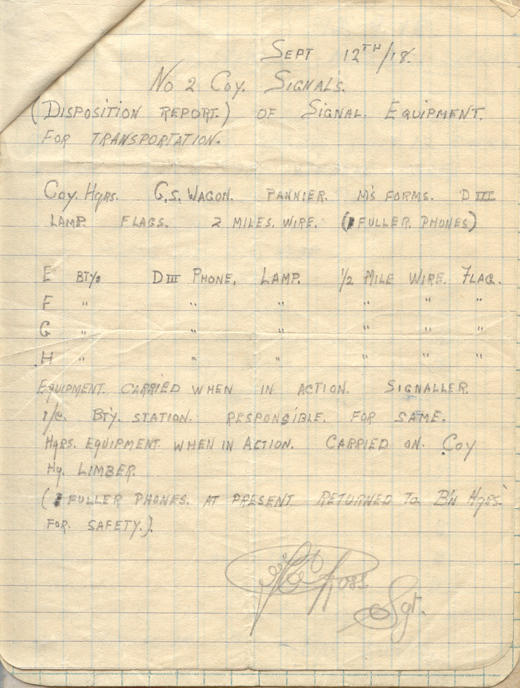 SEPT 12TH/18.
No 2 Coy. SIGNALS.
(DISPOSITION REPORT.) OF SIGNAL EQUIPMENT.
FOR TRANSPORTATION.
Coy. Hqrs. G.S. WAGON. PANNIER. M's FORMS. D III
LAMP. FLAGS. 2 MILES. WIRE. (FULLER. PHONES)
E BTY: D III PHONE, LAMP. 1/2 MILE WIRE. FLAG.
F " " " " " "
G " " " " " "
H " " " " " "
EQUIPMENT. CARRIED WHEN IN ACTION. SIGNALLER.
I/C. BTY. STATION. RESPONSIBLE. FOR SAME.
HQRS. EQUIPMENT WHEN IN ACTION. CARRIED ON. COY
Hq. LIMBER.
(FULLER PHONES. AT PRESENT RETURNED TO B'N HQRS.
FOR SAFETY.)
Ross
Sgt.